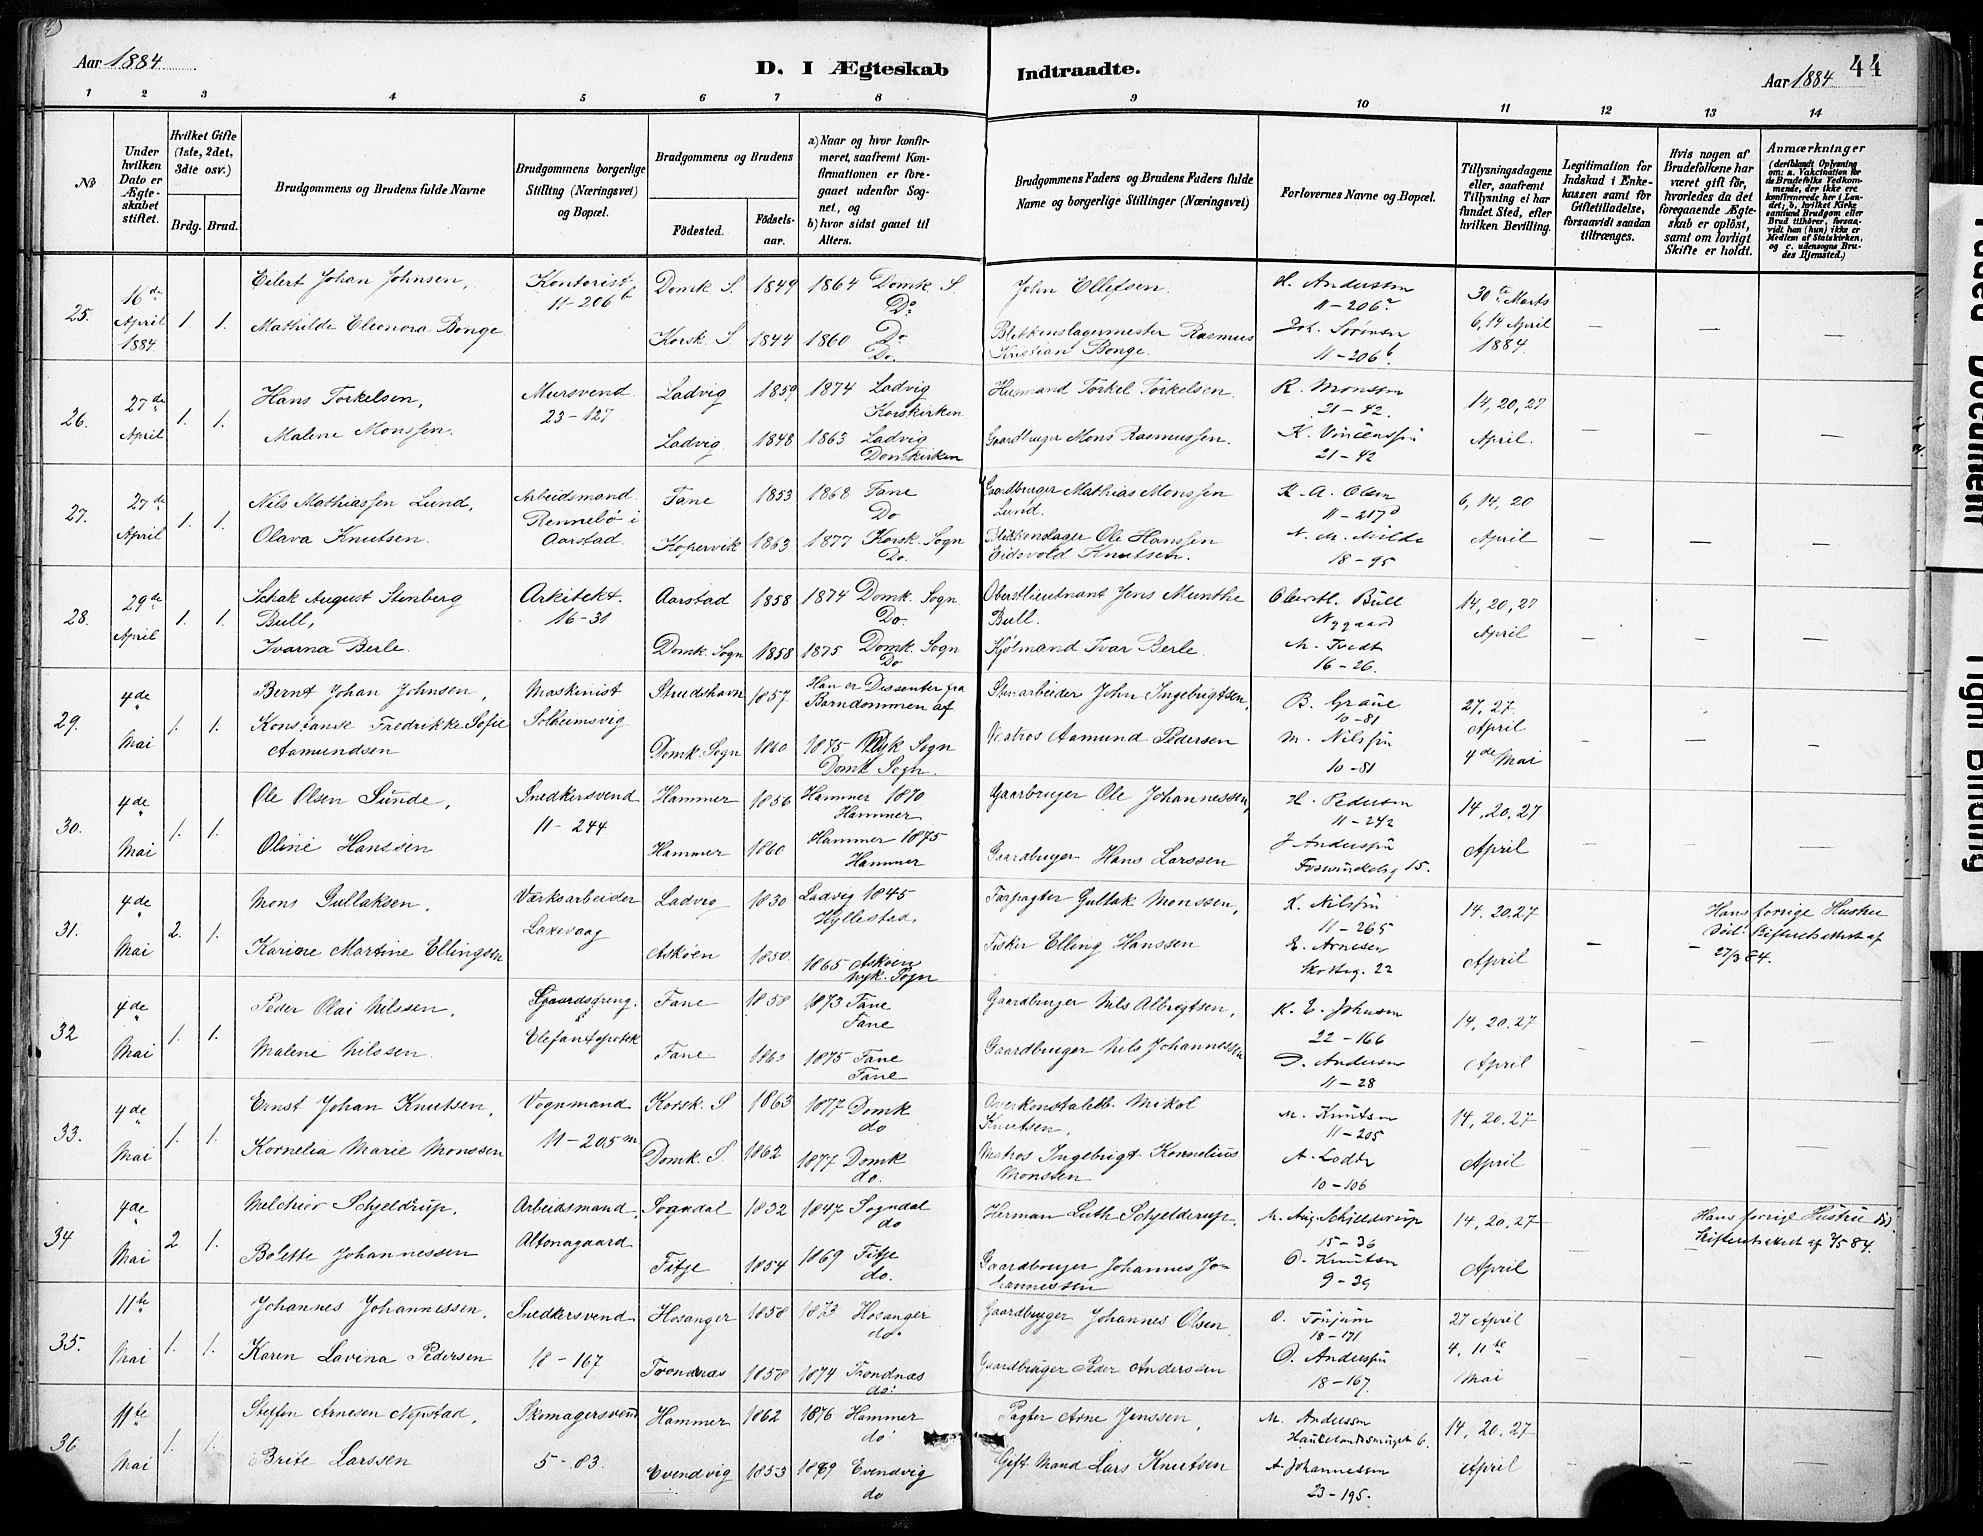 Aar 1884
D. I Ægteskab Indtraadte.
Aar 1884
44
1 2 3 4 5 6 7 8 9 10 11 12 13 14
No
Under hvilken Dato er Ægteskabet stiftet.
Hvilket Gifte (1ste, 2det, 3dte osv.)
Brdg. Brud.
Brudgommens og Brudens fulde Navne
Brudgommens borgerlige Stilling (Næringsvei) og Bopæl.
Brudgommens og Brudens
Fødested.
Fødselsaar.
a) Naar og hvor konfirmeret, saafremt Konfirmationen er foregaaet udenfor Sognet, og
b) hvor sidst gaaet til Alters.
Brudgommens Faders og Brudens Faders fulde Navne og borgerlige Stillinger (Næringsvei)
Forlovernes Navne og Bopæl.
Tillysningsdagene eller, saafremt Tillysning ei har fundet Sted, efter hvilken Bevilling.
Legitimation for Indskud i Enkekassen samt for Giftetilladelse, forsaavidt saadan tiltrænges.
Hvis nogen af Brudefolkene har været gift før, hvorledes da det foregaaende Ægteskab er opløst, samt om lovligt Skifte er holdt.
Anmærkninger
(deriblandt Oplysning om: a. Vakcination for de Brudefolks Vedkommende, der ikke ere konfirmerede her i Landet; b. hvilket Kirkesamfund Brudgom eller Brud tilhører, forsaavidt han (hun) ikke er Medlem af Statskirken, og c. udensogns Brudes Hjemsted.)
25. 16de April 1884. 1 1.
Eilert Johan Johnsen, Kontorist 11-206b Domk S. 1849 1864 Domk. S. Do John Ellefsen. H. Andersen 11-206a 30te Marts
Mathilde Eleonora Bonge Korsk. S. 1844 1860 Do Do. Blikkenslagermester Rasmus Kristian Bonge. Joh. Sørensen 11-206b 6, 14 April 1884.
26. 27de April 1. 1.
Hans Torkelsen, Mursvend 23-127 Ladvig 1859 1874 Ladvig Korskirken Husmand Torkel Torkelsen. R. Monsen 21-42. 14, 20, 27
Malene Monssen. Ladvig 1848 1863 Ladvig Domkirken Gaardbruger Mons Rasmussen. K. Vincenssen 21-42 April.
27. 27de April 1. 1.
Nils Mathiassen Lund, Arbeidsmand Rennebø i Aarstad. Fane 1853 1868 Fane Do Gaardbruger Mathias Monssen Lund. K. A. Olsen 11-217d 6, 14, 20
Olava Knutsen. Kopervik 1863 1877 Korsk. Sogn Do. Blikkenslager Ole Hanssen Eidsvold Knutsen. N. M. Milde 18-95 April
28. 29de April 1. 1.
Schak August Stenberg Bull, Arkitekt. 16-31 Aarstad 1858 1874 Domk. Sogn Do. Oberstlieutnant Jens Munthe Bull. Oberstl. Bull Nygaard 14, 20, 27
Ivarna Berle. Domk. Sogn 1858 1875 Domk. Sogn Do Kjølmand Ivar Berle. M. Tvedt 16-26. April
29. 4de Mai 1. 1.
Bernt Johan Johnsen, Maskinist Solheimsvig Strudshavn 1857 Han er Dissenter fra Barndommen af Stenarbeider John Ingebrigtsen, B. Graue 10-81 27, 27. April
Konstanse Fredrikke Sofie Aamundsen Domk. Sogn 1860 1875 Nyk Sogn Domk Sogn. Matros Aamund Pedersen M. Nilssen 10-81 4de Mai
30. 4de Mai 1. 1.
Ole Olsen Sunde, Snedkersvend 11-244 Hammer 1856 Hammer 1870 Hammer Gaarbruger Ole Johannessen, H. Pedersen 11-242 14, 20, 27
Oline Hanssen Hammer 1860 Hammer 1875 Hammer Gaardbruger Hans Larssen J Anderssen 15. April
31. 4de Mai 2. 1.
Mons Gullaksen, Værksarbeider Laxevaag Ladvig 1830 Ladvig 1845 Hyllestad Forpagter Gullak Monssen, K. Nilssen 11-265 14, 20, 27 Hans forrige Hustru død. Skifteretsattest af 27/3 84.
Karine Martine Ellingsen Askøen 1850. 1865 Askøen Nyk. Sogn Fisker Elling Hanssen E. Arnesen Skotteg. 22 April
32 4de Mai 1. 1.
Peder Olai Nilssen, Gaardsdreng. Elefantapotek Fane 1858 1873 Fane Fane Gaardbruger Nils Albregtsen, K. E. Johnsen 22-166 14, 20, 27
Malene Nilssen. Fane 1875 Fane Fane Gaardbruger Nils Johannessen D. Andersen 11-28 April
33. 4de Mai 1. 1.
Ernst Johan Knutsen, Vognmand 11-205m Korsk. S 1863 1877 Domk do Overkonstabel Mikal Knutsen, M. Knutsen 11-205 14, 20, 27
Kornelia Marie Monssen Domk. S. 1862 1877 Domk do. Matros Ingebrigt Kornelius Monssen A. Lodden 10-106 April
34 4de Mai 2 1.
Melchior Schjeldrup, Arbeidsmand, Altonagaard Sogndal 1832 1847 Sogndal do Herman Luth Schjelderup, M. Aug. Schjelderup 15-36 14, 20, 27 Hans forrige Hustru død Skifteretsattest af 1/5 84.
Bolette Johannessen Fitje 1854 1869 Fitje do. Gaardbruger Johannes Johannessen O. Knutsen 9-39 April
35. 11te Mai 1. 1.
Johannes Johannessen, Snedkersvend 18-167 Hosanger 1858 1873 Hosanger do. Gaardbruger Johannes Olsen O. Tønjum 18-171 27 April
Karen Lavina Pedersen Trondnæs 1858 1874 Trondnæs do. Gaardbruger Peder Anderssen O. Anderssen 18-167. 4, 11te Mai
36 11te Mai 1. 1.
Steffen Arnesen Nepstad, Skomagersvend 5-83. Hammer 1862 1876 Hammer do Pagter Arne Jenssen, M. Andersen Haukelandssmuget 6. 14, 20, 27
Brite Larssen Evendvig 1853 1869 Evendvig do Gift Mand Lars Knutsen A. Johannessen 23-195. April